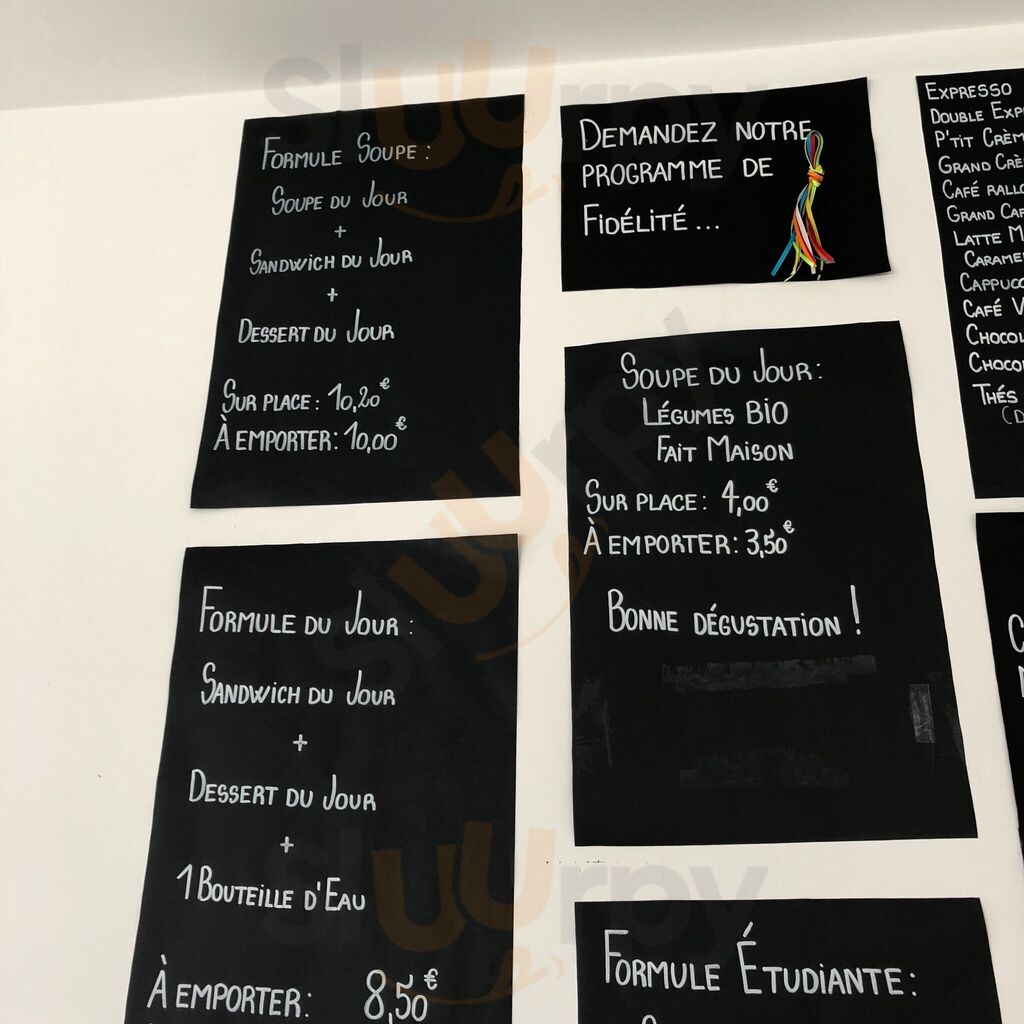 Formule Soupe :
Soupe du Jour
+
Sandwich du Jour
+
Dessert du Jour
Sur place : 10,20€
À emporter : 10,00€
Demandez notre
programme de
Fidélité...
Expresso
Double Exp
P'tit Crèm
Grand Crè
Café rallo
Grand Caf
Latte M
Caramel
Cappucc
Café V
Chocol
Chocol
Thés
(D
Soupe du Jour :
Légumes Bio
Fait Maison
Sur place : 4,00€
À emporter : 3,50€
Bonne dégustation !
Formule du Jour :
Sandwich du Jour
+
Dessert du Jour
+
1 Bouteille d'Eau
À emporter : 8,50€
Formule Étudiante :
slUUrpy
slUUrpy
slUUrpy